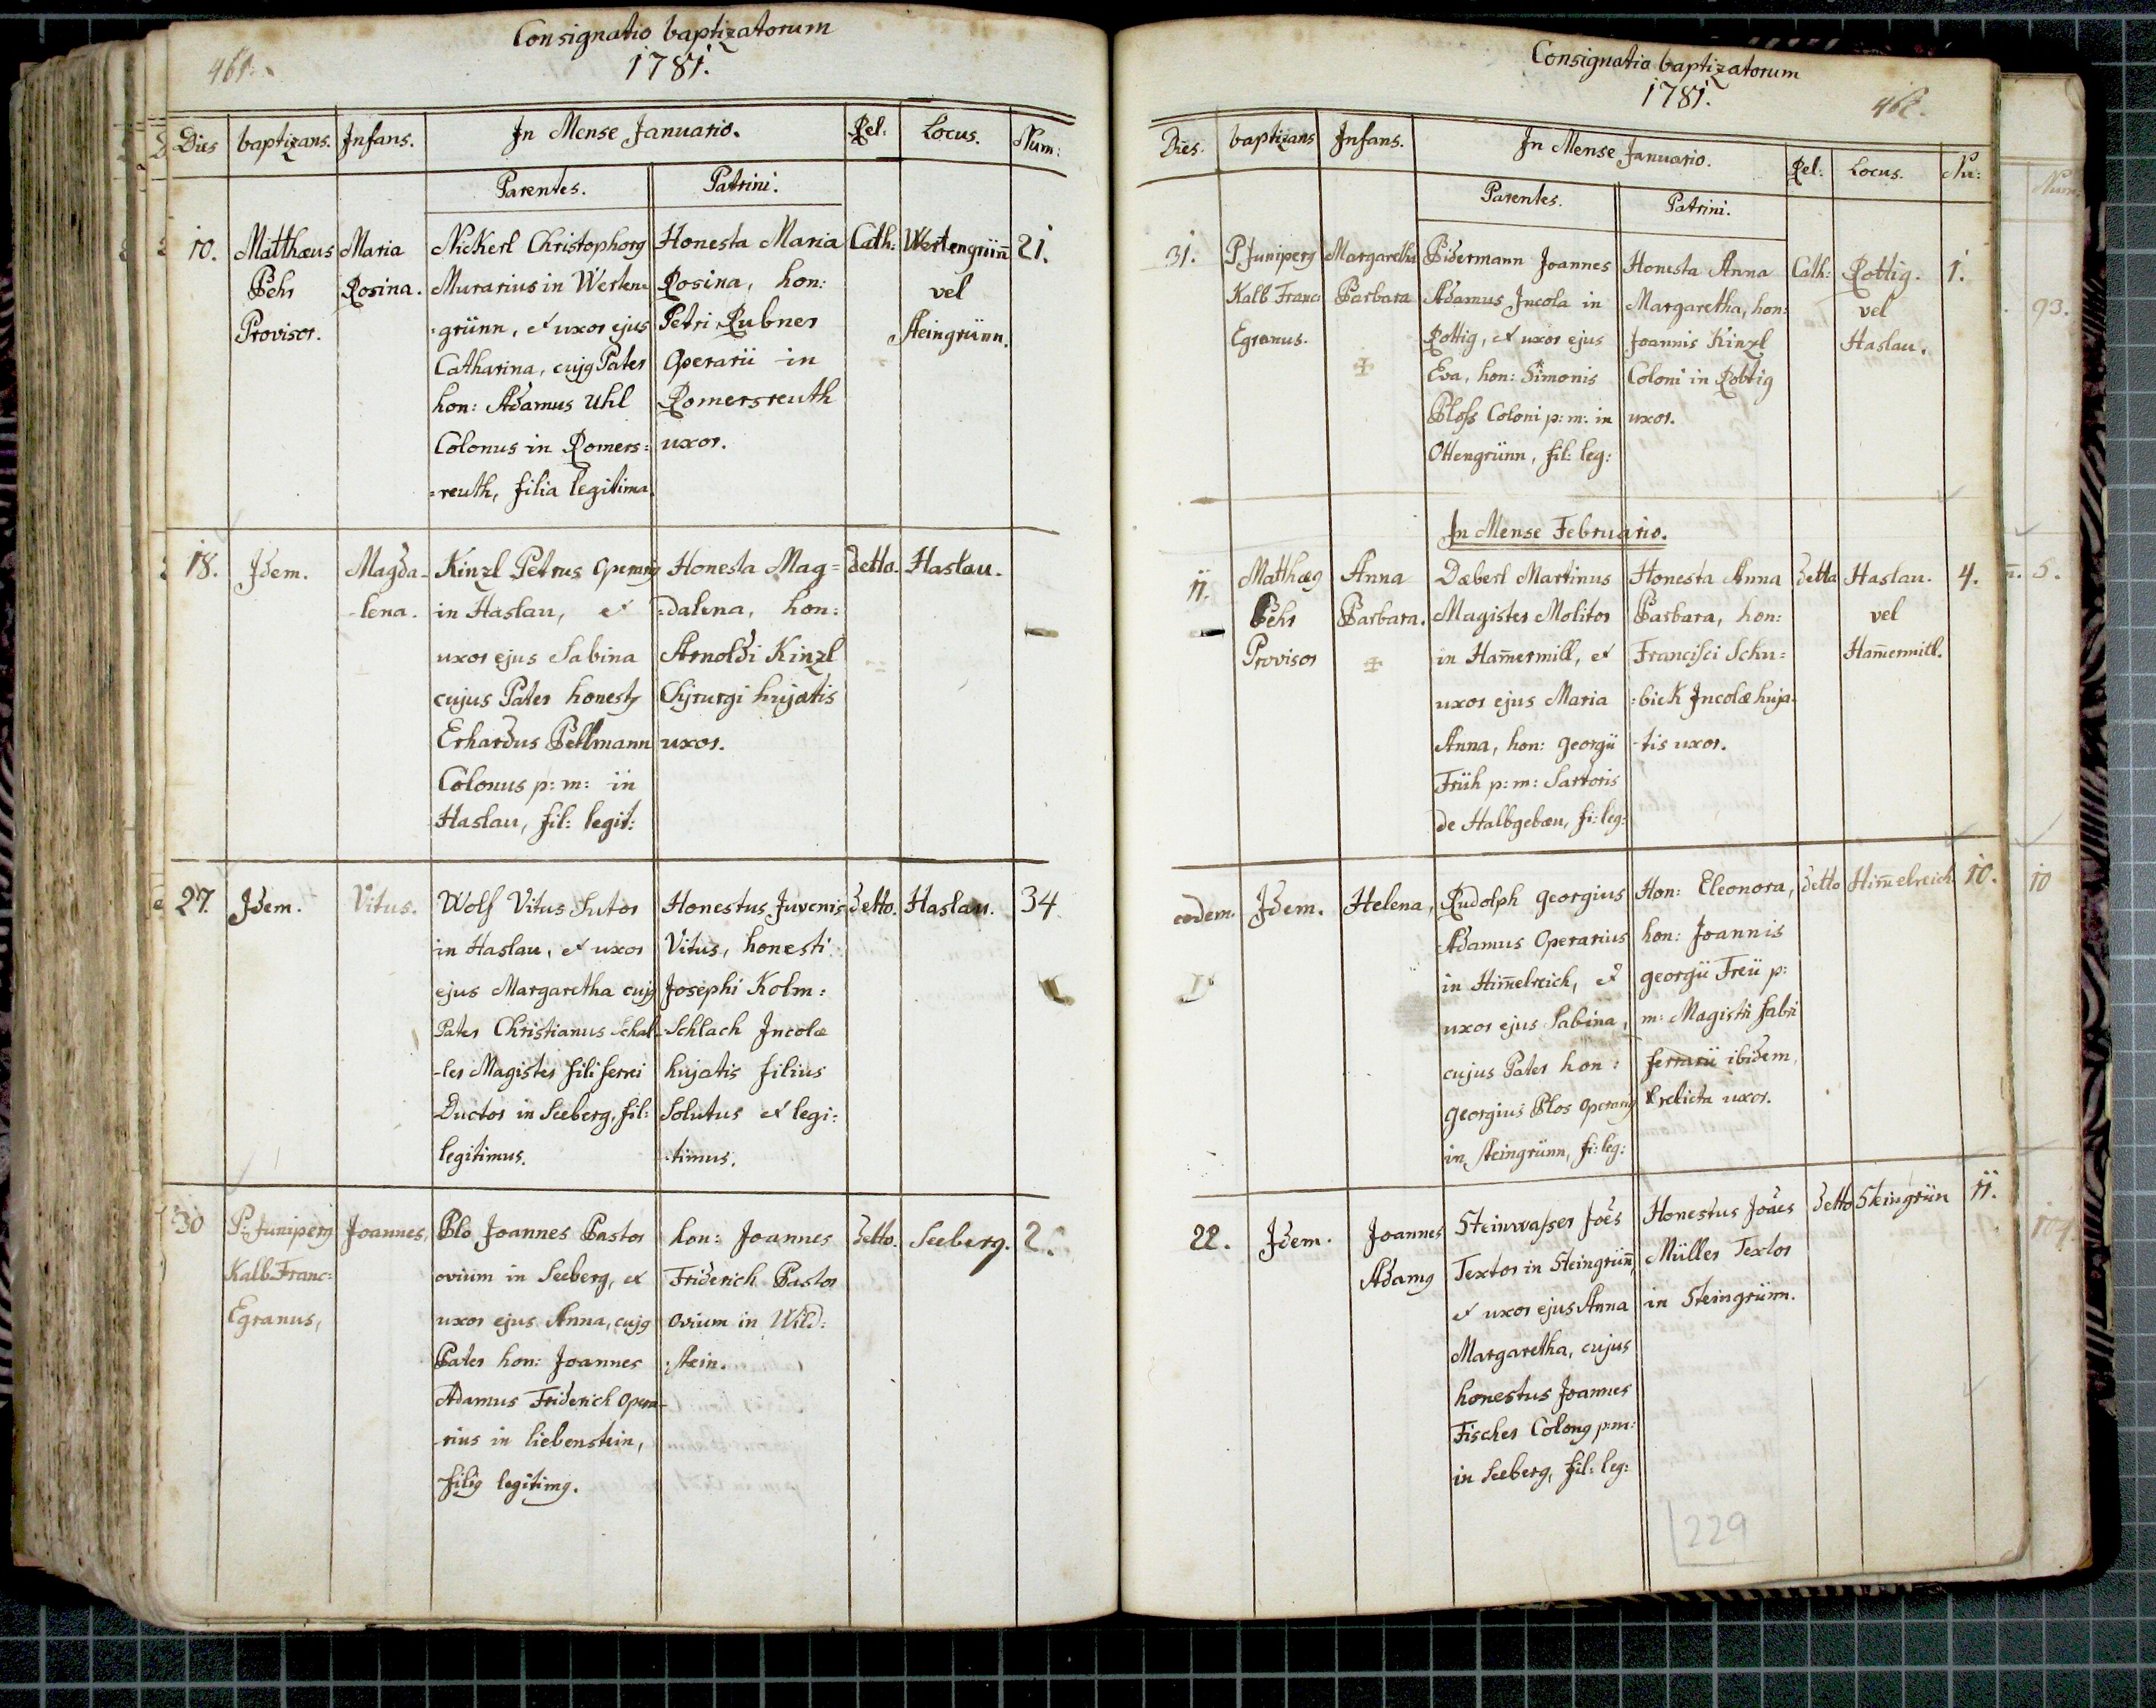 Consignatio baptizatorum
1781.
461.
Dies baptizans. Infans. In Mense Januario. Rel: Locus. Num:
Parentes. Patrini.
10. Matthæus Maria Nickerl Christophorg Honesta Maria Cath: Wertengrün̄ 21.
Pehr Rosina. Murarius in Werten= Rosina, hon: vel
Provisor. =grünn, et uxor ejus Petri Rubner Steingrünn.
Catharina, cujg Pater Operarii in
hon: Adamus Uhl Romersreuth
Colonus in Romers= uxor.
=reuth, filia legitima.
18. Idem. Magda- Kinzl Petrus Operarig Honesta Mag= detto. Haslau.
-lena. in Haslau, et =dalena, hon:
uxor ejus Sabina Arnoldi Kinzl
cujus Pater honestg Chyrurgi hujatis
Erhardus Pellmann uxor.
Colonus p: m: in
Haslau, fil: legit:
27. Idem. Vitus. Wolf Vitus Sutor Honestus Juvenis detto. Haslau. 34
in Haslau, et uxor Vitus, honesti
ejus Margaretha cujg Josephi Kolm=
Pater Christianus Schal- -Schlach Incolæ
-ler Magister fili ferrei hujatis filius
Ductor in Seeberg, fil: Solutus et legi=
legitimus. -timus.
30 P: Juniperg Joannes, Plo Joannes Pastor hon: Joannes detto. Seeberg. 2.
Kalb Franc: ovium in Seeberg, et Friderich Pastor
Egranus, uxor ejus Anna, cujg ovium in Wild=
Pater hon: Joannes =stein.
Adamus Friderich Opera-
-rius in liebenstein,
filig legitimg.
Consignatio baptizatorum
1781.
462.
Dies. baptizans Infans. In Mense Januario. Rel: Locus. Nu:
Parentes. Patrini.
31. P Juniperg Margaretha Pidermann Joannes Honesta Anna Cath: Rottig. 1.
Kalb Franc: Barbara Adamus Incola in Margaretha, hon: vel
Egranus. Rottig, et uxor ejus Joannis Kinzl Haslau.
Eva, hon: Simonis Coloni in Rottig
Ploss Coloni p: m: in uxor.
Ottengrünn, fil: leg:
In Mense Februario.
11. Matthæg Anna Dæberl Martinus Honesta Anna detto Haslau. 4.
Pehr Barbara. Magister Molitor Barbara, hon: vel
Provisor in Ham̄ermill, et Francisci Schu= Ham̄ermill.
uxor ejus Maria =bick Incolæ huja-
Anna, hon: georgii -tis uxor.
Früh p: m: Sartoris
de Halbgebau, fi: leg:
eodem. Idem. Helena, Rudolph georgius Hon: Eleonora, detto Him̄elreich 10.
Adamus Operarius hon: Joannis
in Him̄elreich, et georgii Freü p:
uxor ejus Sabina, m: Magistri fabri
cujus Pater hon: ferrarii ibidem,
georgius Plos Operarig relicta uxor.
in Steingrünn, fi: leg:
22. Idem. Joannes Steinwasser Joēs Honestus Joāes detto Steingrün 11.
Adamg Textor in Steingrün̄, Müller Textor
et uxor ejus Anna in Steingrünn.
Margaretha, cujus
honestus Joannes
Fischer Colong p: m:
in Seeberg, fil: leg:
229
Num.
93.
5.
10
104.